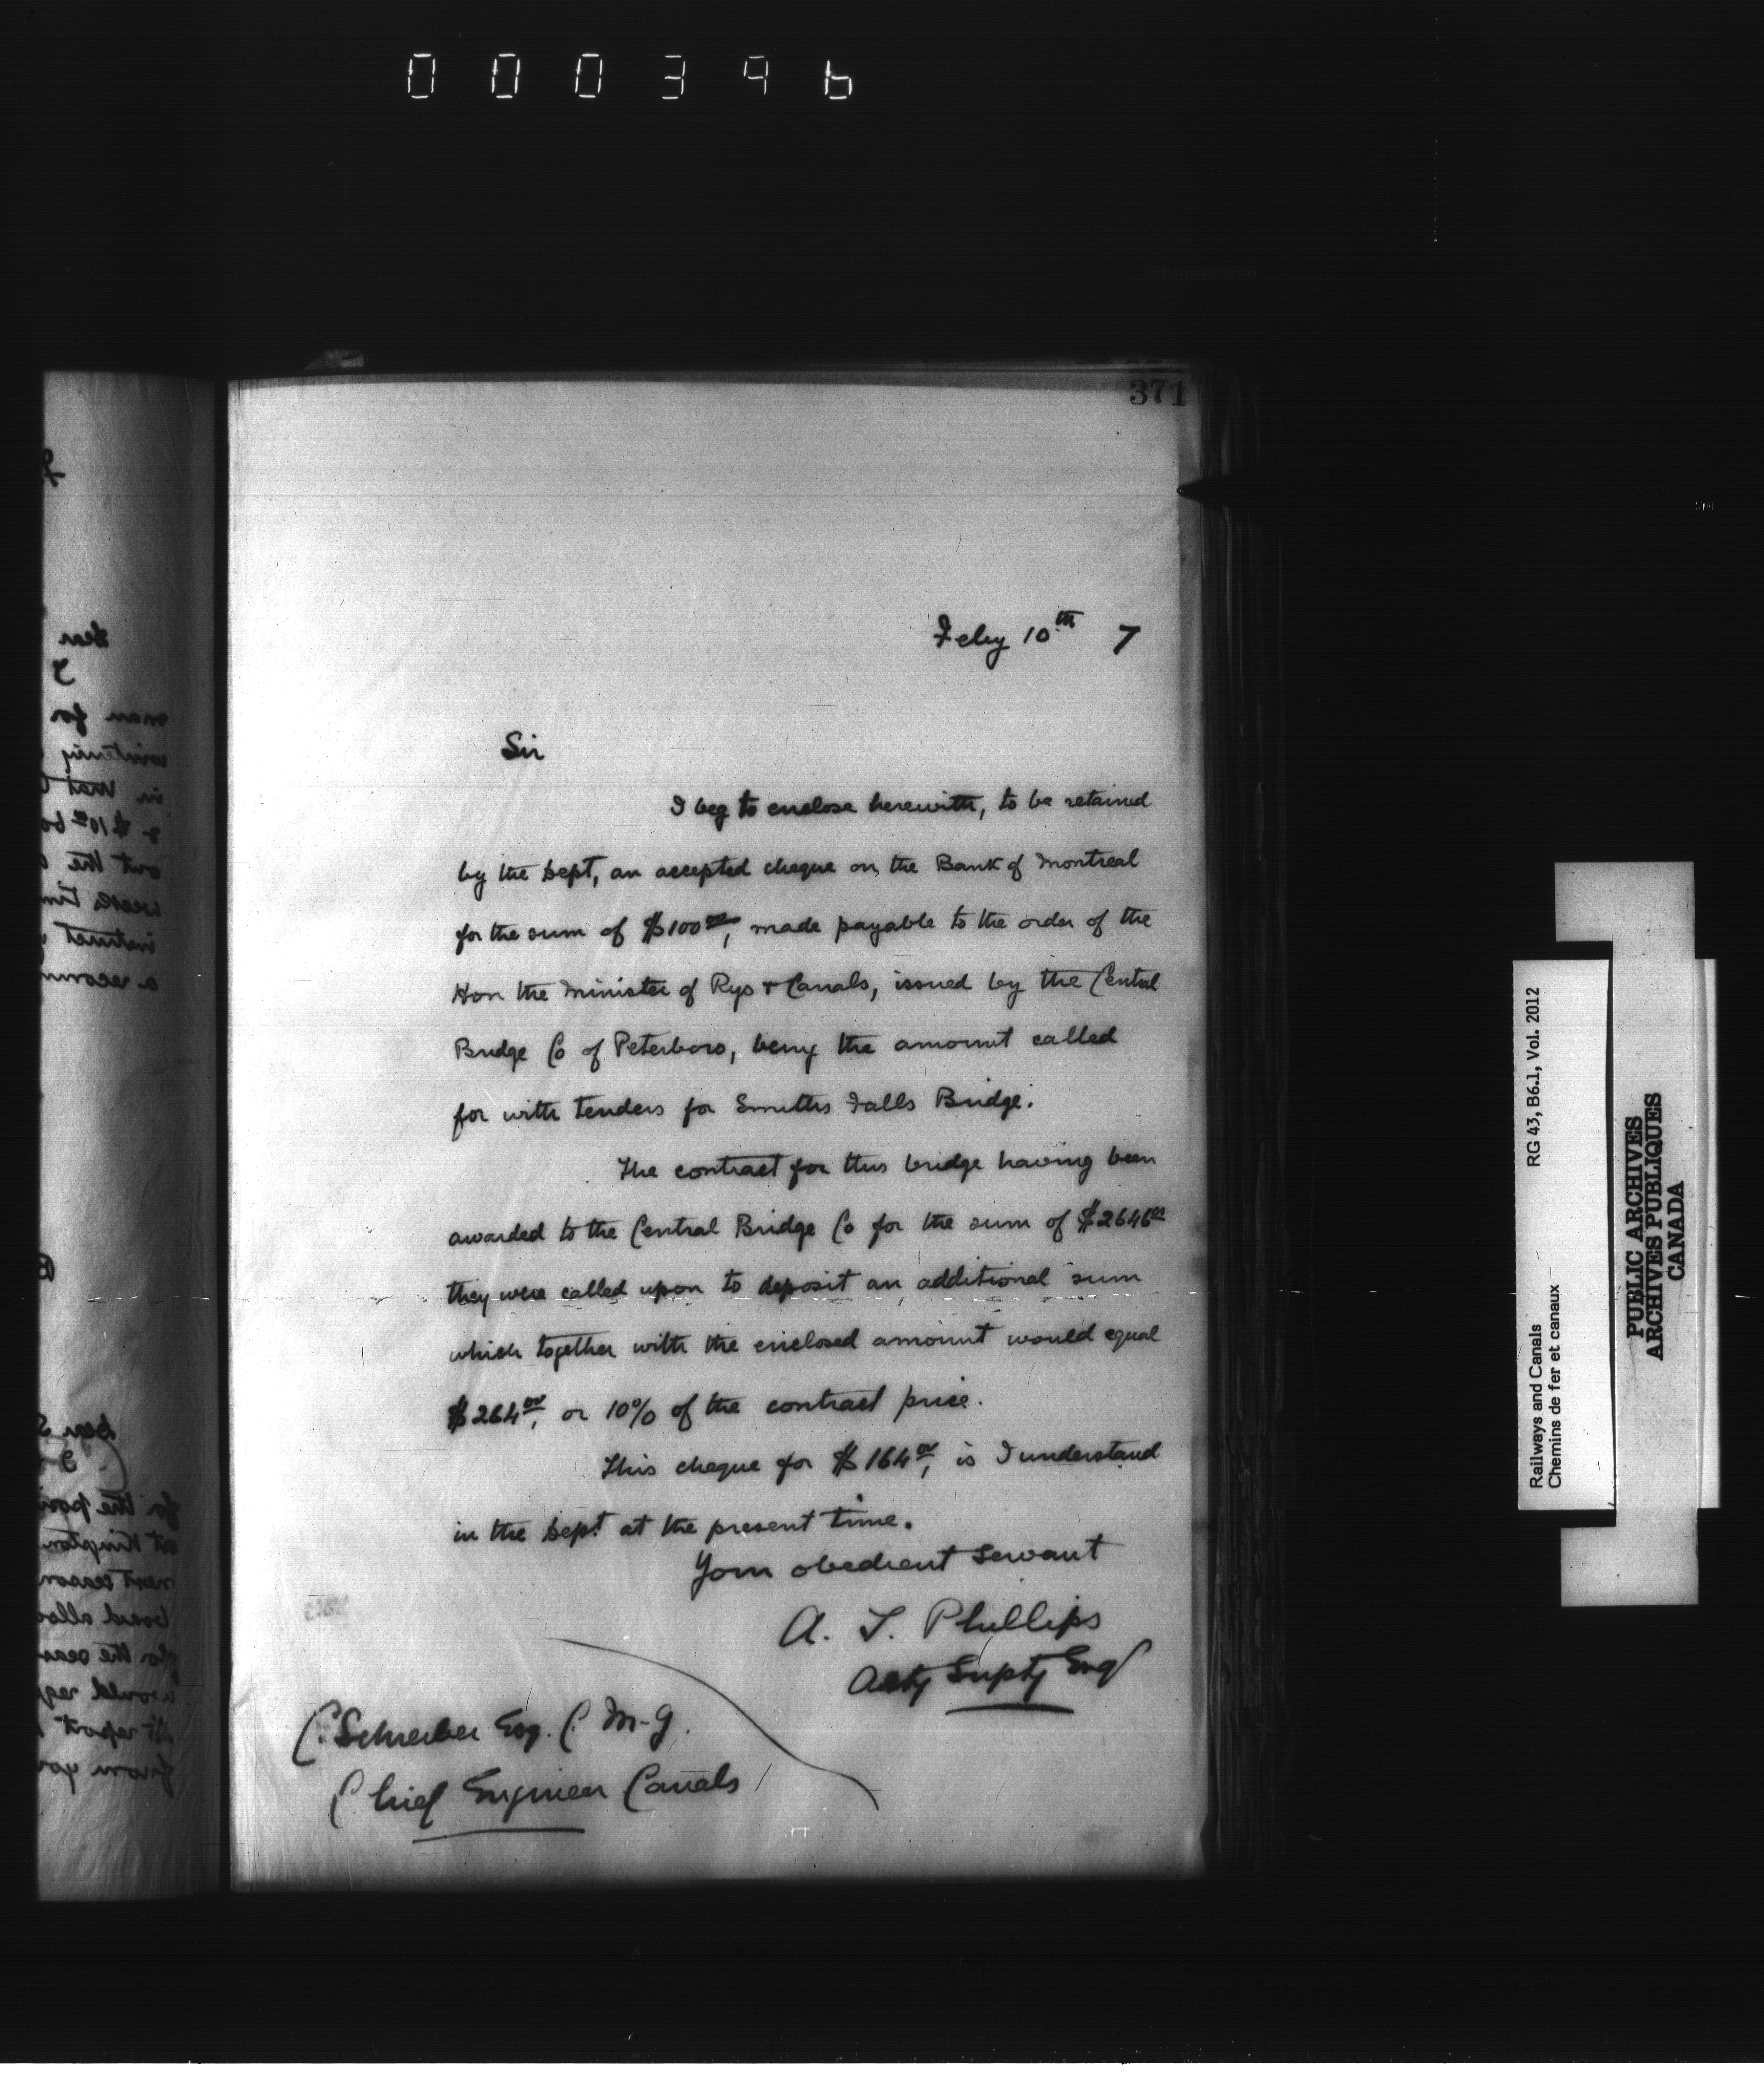 000396
371
Feby 10th 7
Sir
I beg to enclose herewith, to be retained
by the Dept, an accepted cheque on the Bank of Montreal
for the sum of $100.00, made payable to the order of the
Hon the Minister of Rys & Canals, issued by the Central
Bridge Co of Peterboro, being the amount called
for with tenders for Smiths Falls Bridge.
The contract for this bridge having been
awarded to the Central Bridge Co for the sum of $2646.00
they were called upon to deposit an additional sum
which together with the enclosed amount would equal
$264.00, or 10% of the contract price.
This cheque for $164.00, is I understand
in the Dept. at the present time.
Your obedient servant
A. T. Phillips
Actg Suptg Engr
C. Schreiber Esq. C. M. G.
Chief Engineer Canals
Dear
I
man for
wintering
in that
& $10.00 bo
out the
weeks tim
instruct
a recomm
Dear S
I
for the posi
at Kingston
next season
board allo
for the seas
would req
to report
from you
Railways and Canals RG 43, B6.1, Vol. 2012
Chemins de fer et canaux
PUBLIC ARCHIVES
ARCHIVES PUBLIQUES
CANADA